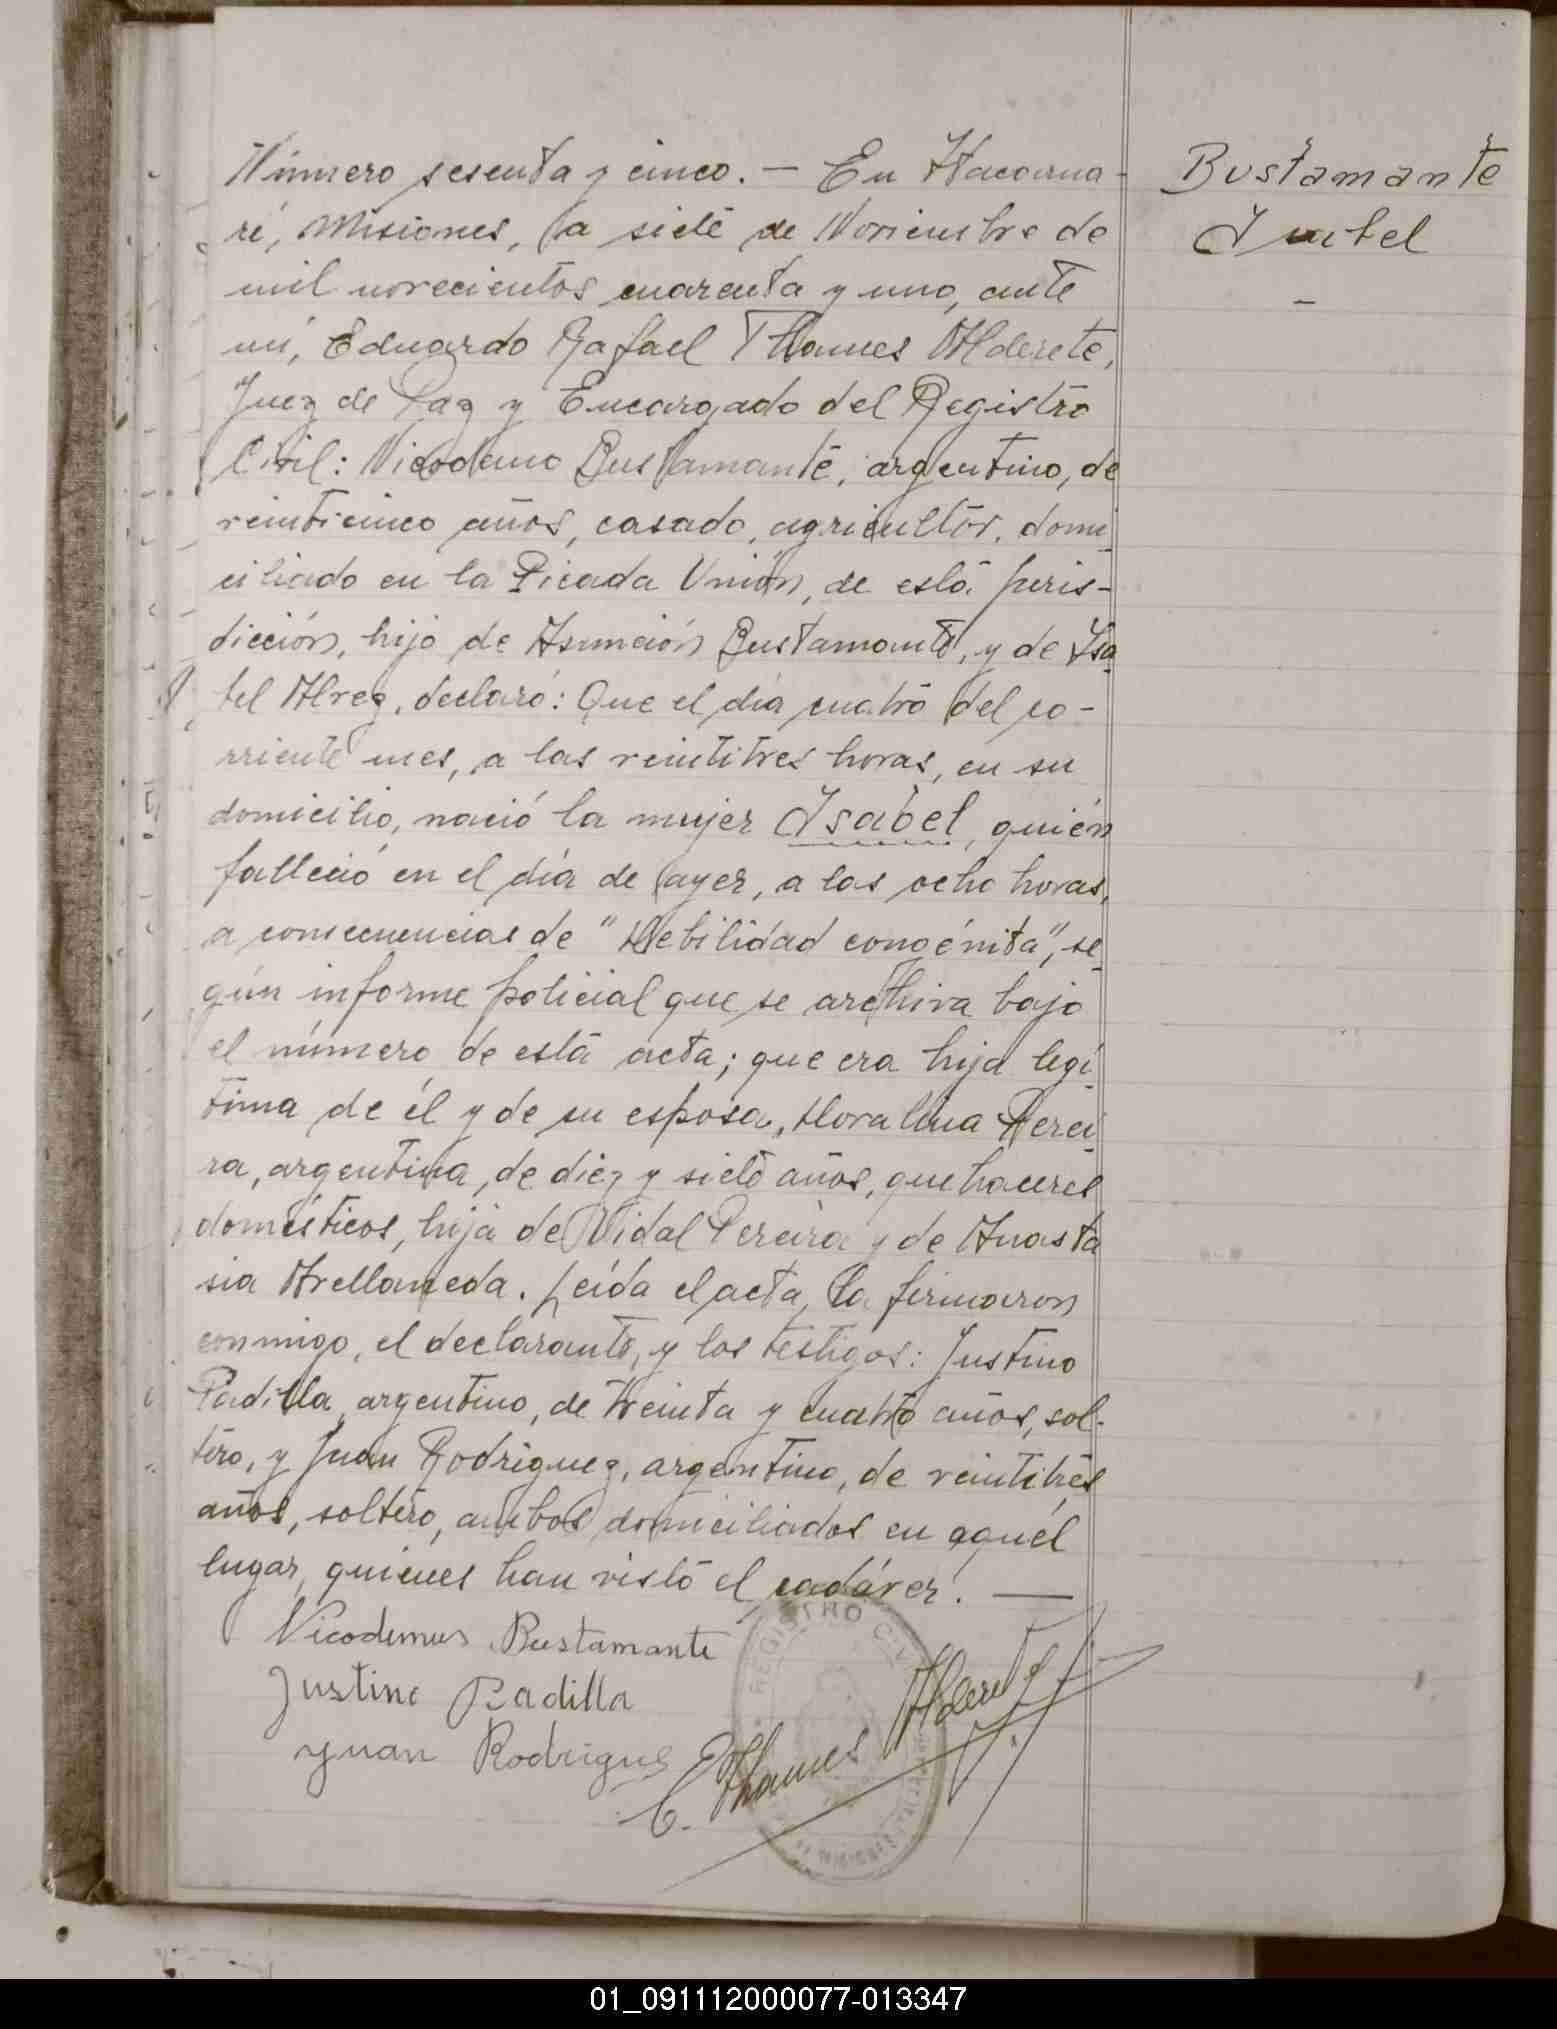 Número sesenta y cinco. — En Itacarua-
ré, Misiones, a siete de Noviembre de
mil novecientos cuarenta y uno, ante
mí, Eduardo Rafael Thames Alderete,
Juez de Paz y Encargado del Registro
Civil: Nicodemo Bustamante, argentino, de
veinticinco años, casado, agricultor, domi
ciliado en la Picada Unión, de está juris-
dicción, hijo de Asunción Bustamante, y de Isa
bel Alvez, declaró: Que el día cuatro del co-
rriente mes, a las veintitres horas, en su
domicilio, nació la mujer Isabel, quién
falleció en el día de ayer, a las ocho horas,
a consecuencias de "Debilidad congénita", se
gún informe policial que se archiva bajo
el número de está acta; que era hija legí
tima de él y de su esposa, Perei
ra, argentina, de diez y siete años, quehaceres
domésticos, hija de Vidal Pereira y de Anasta
sia Avellaneda. Leída el acta, la firmaron
conmigo, el declarante, y los testigos: Justino
Padilla, argentino, de treinta y cuatro años, sol-
tero, y Juan Rodriguez, argentino, de veintitrés
años, soltero, ambos domiciliados en aquél
lugar, quienes han visto el cadáver. —
Nicodemus Bustamante
Justino Padilla
Juan Rodrigues
E. Thames Alderete
REGISTRO CIVIL
MISIONES
Bustamante
Isabel
—
01_091112000077-013347